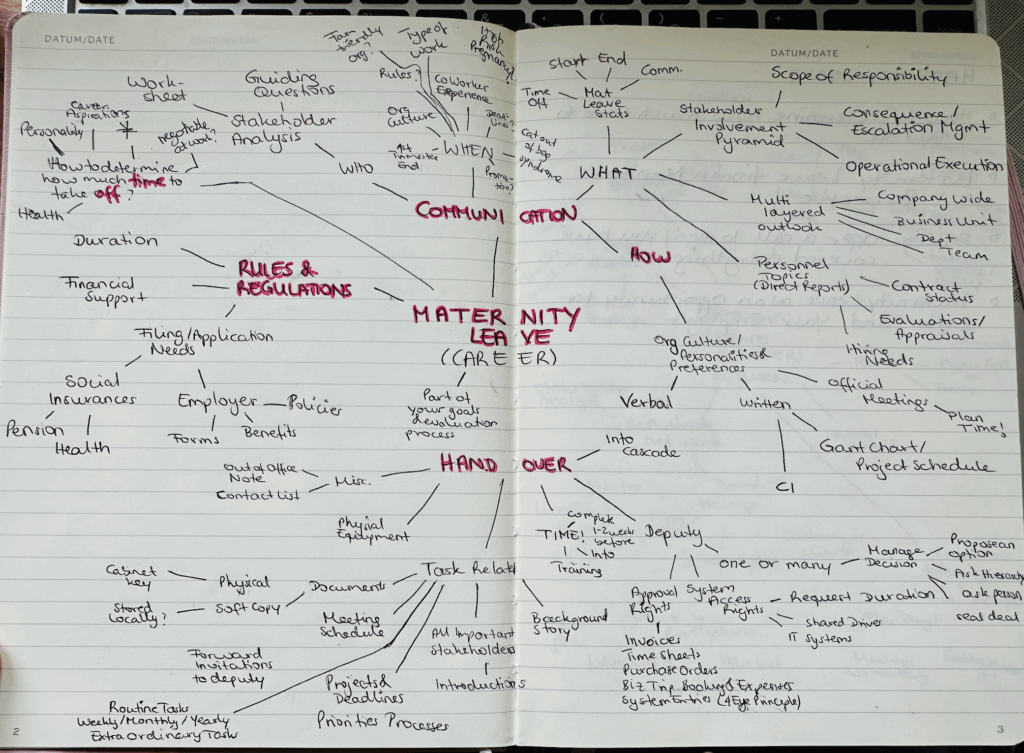 DATUM/DATE
Fam
friendly
org.?
Type of
work
High
Risk
Pregnancy?
Rules?
CoWorker
Experience
Org
Culture
Dead-
lines?
WHEN
1st
Trimester
End
Promo-
tion?
Cat out
of bag
syndrome
Work-
sheet
Guiding
Questions
Stakeholder
Analysis
WHO
Career
Aspirations
Personality
negotiable
at work?
How to determine
how much time to
take off?
Health
COMMUNICATION
Duration
Financial
Support
RULES &
REGULATIONS
Filing/Application
Needs
Social
Insurances
Pension
Health
Employer
Policies
Forms
Benefits
MATERNITY
LEAVE
(CAREER)
Part of
your goals
& evaluation
process
HANDOVER
Out of Office
Note
Contact List
Misc.
Physical
Equipment
Task Relat
Documents
Physical
Cabinet
Key
Soft Copy
Stored
Locally?
Meeting
Schedule
Forward
Invitations
to deputy
Routine Tasks
Weekly/Monthly/Yearly
Extra Ordinary Task
Projects &
Deadlines
Priorities Processes
All Important
Stakeholders
Introductions
Background
Story
2
DATUM/DATE
Start
End
Comm.
Time
Off
Mat
Leave
Stats
WHAT
Scope of Responsibility
Stakeholder
Involvement
Pyramid
Consequence/
Escalation Mgmt
Operational Execution
Multi
layered
outlook
Company Wide
Business Unit
Dept
Team
HOW
Personnel
Topics
(Direct Reports)
Contract
Status
Evaluations/
Appraisals
Hiring
Needs
Org Culture/
Personalities &
Preferences
Verbal
Written
Official
Meetings
Plan
Time!
Gant Chart/
Project Schedule
CI
Into
Cascade
TIME!
Complete
1-2 weeks
before
Into
Training
Deputy
one or many
Manage
Decision
Propose an
option
Ask Hierarchy
ask person
seal deal
Approval
Rights
System
Access
Rights
Request Duration
Shared Drives
IT Systems
Invoices
Time Sheets
Purchase Orders
Biz Trip Booking & Expenses
System Entries (4 Eye Principle)
3